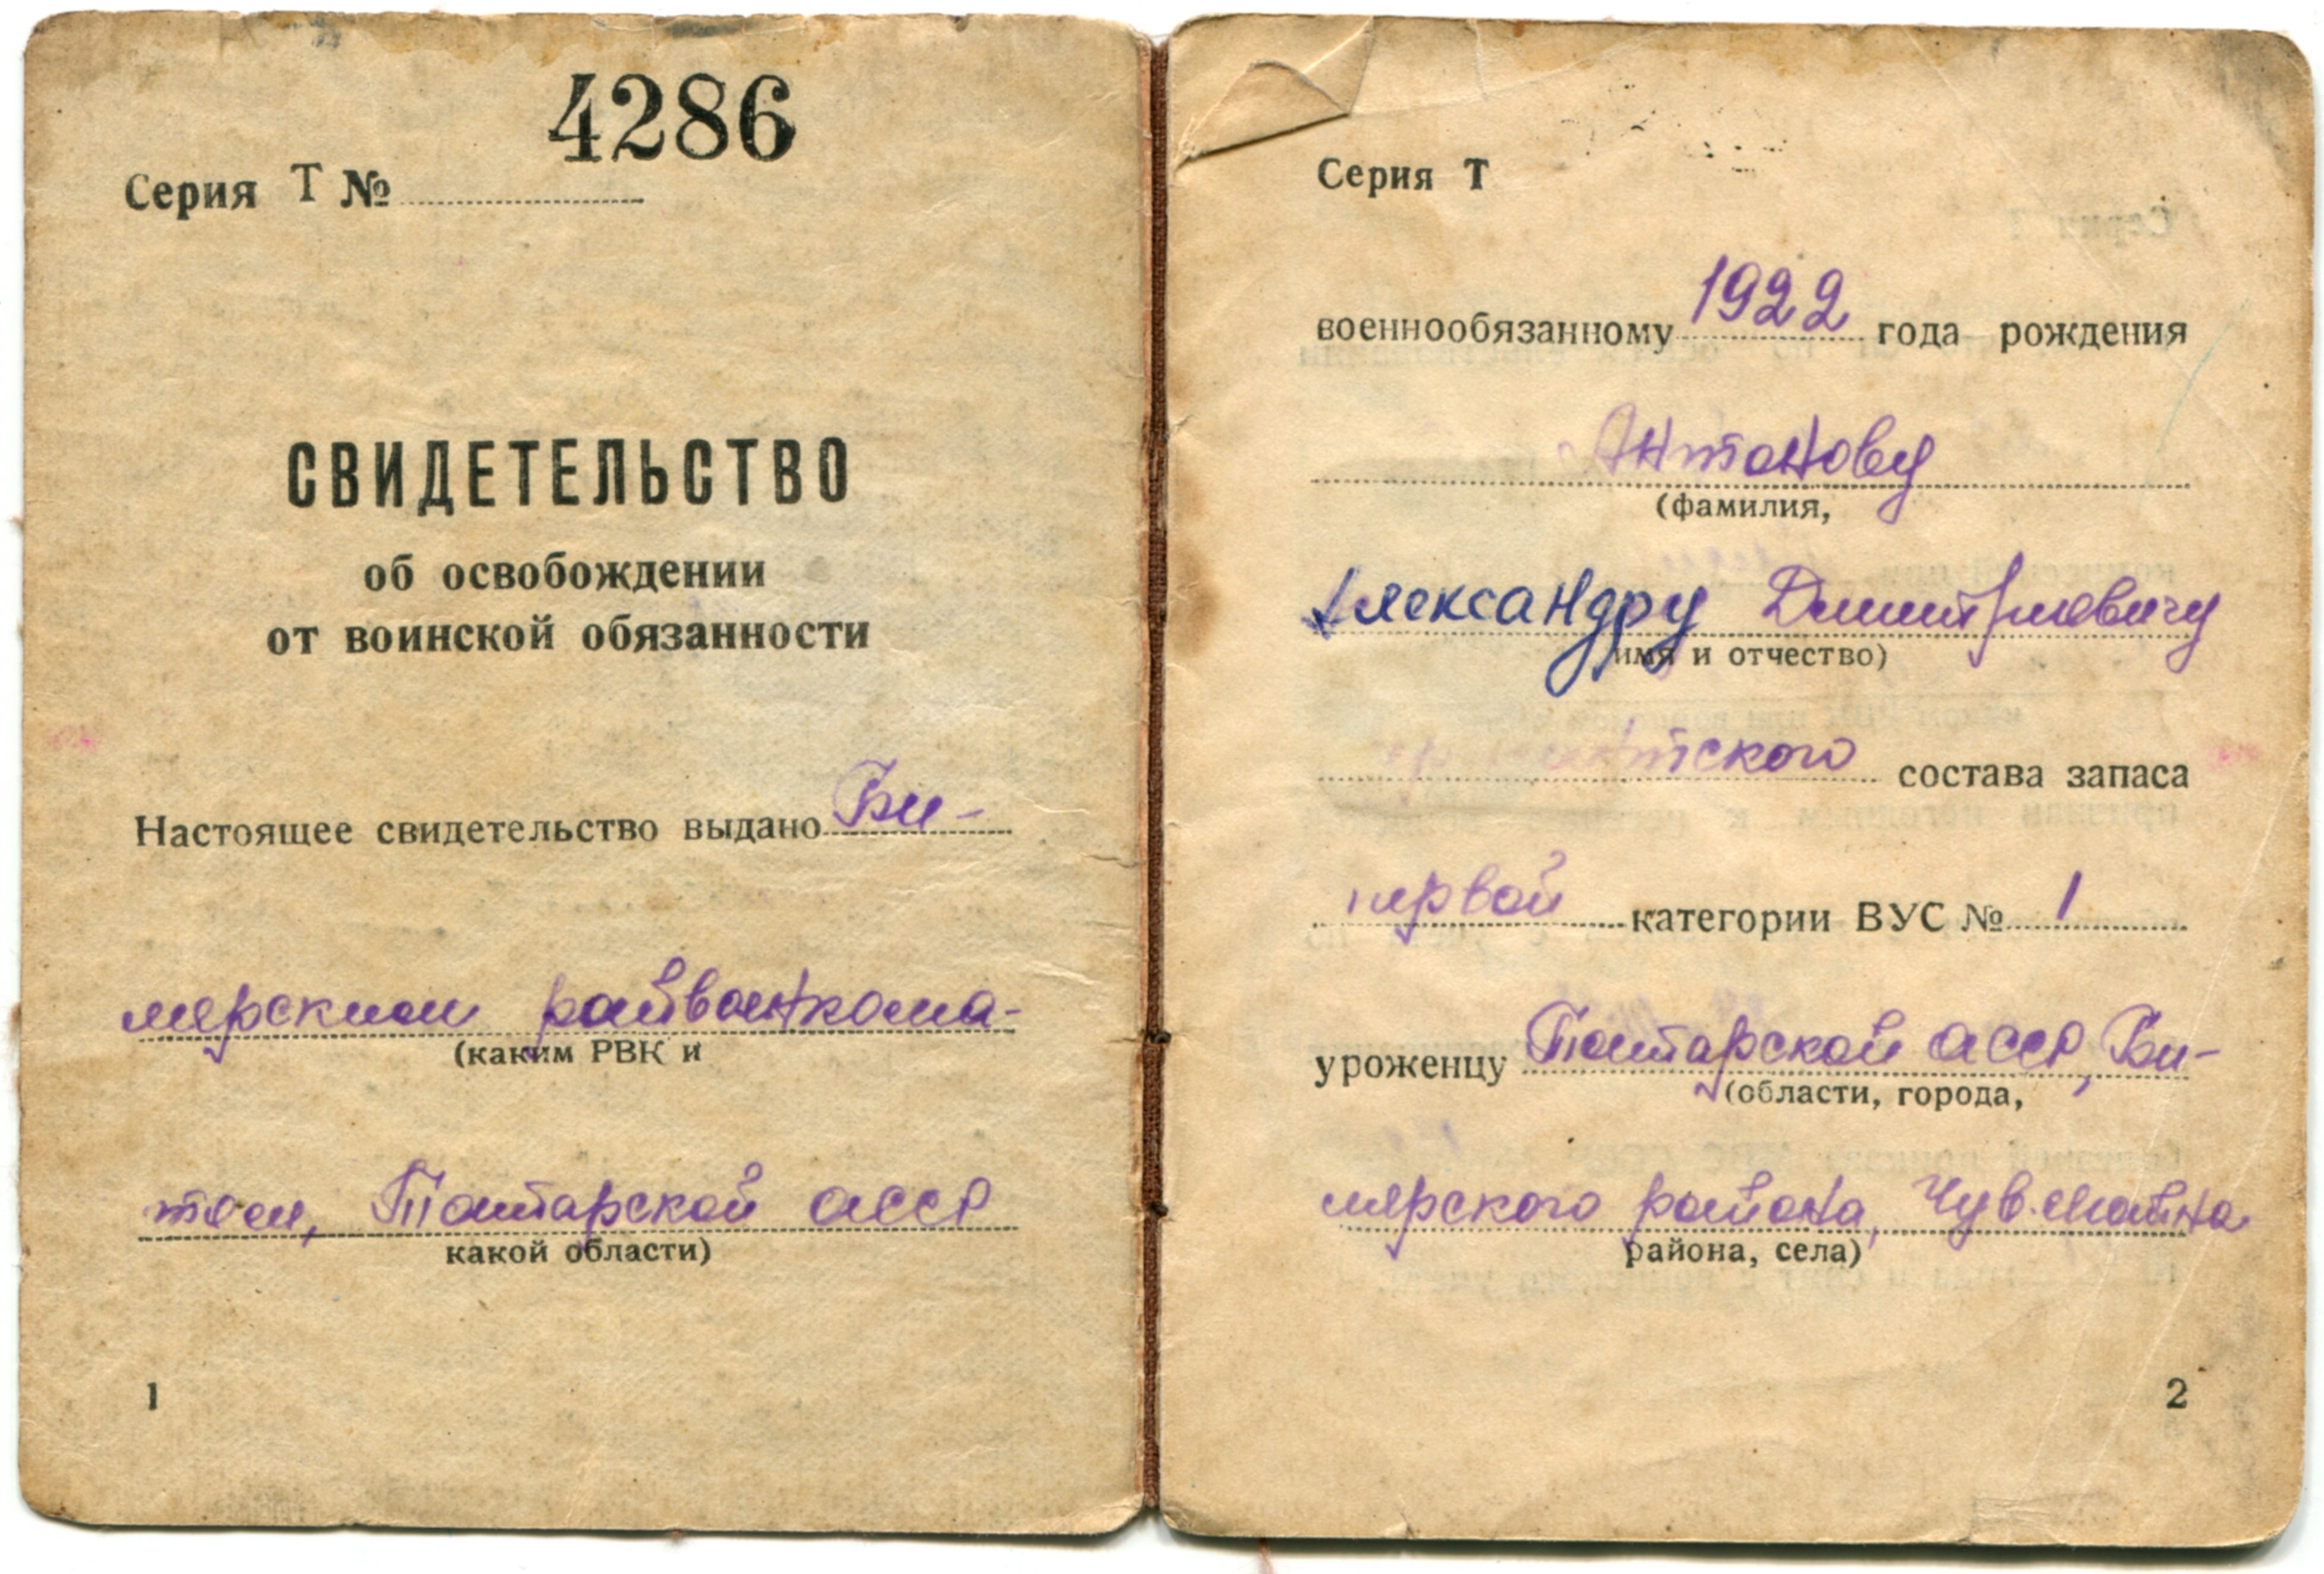 4286
Серия Т №
СВИДЕТЕЛЬСТВО
об освобождении
от воинской обязанности
Настоящее свидетельство выдано Би-
лярским райвоенкома-
(каким РВК и
том, Татарской АССР
какой области)
1
Серия Т
военнообязанному 1922 года рождения
Антонову
(фамилия,
Александру Дмитриевичу
имя и отчество)
состава запаса
первой категории ВУС № 1
уроженцу Татарской АССР, Би-
(области, города,
лярского района, Чув. Майна
района, села)
2